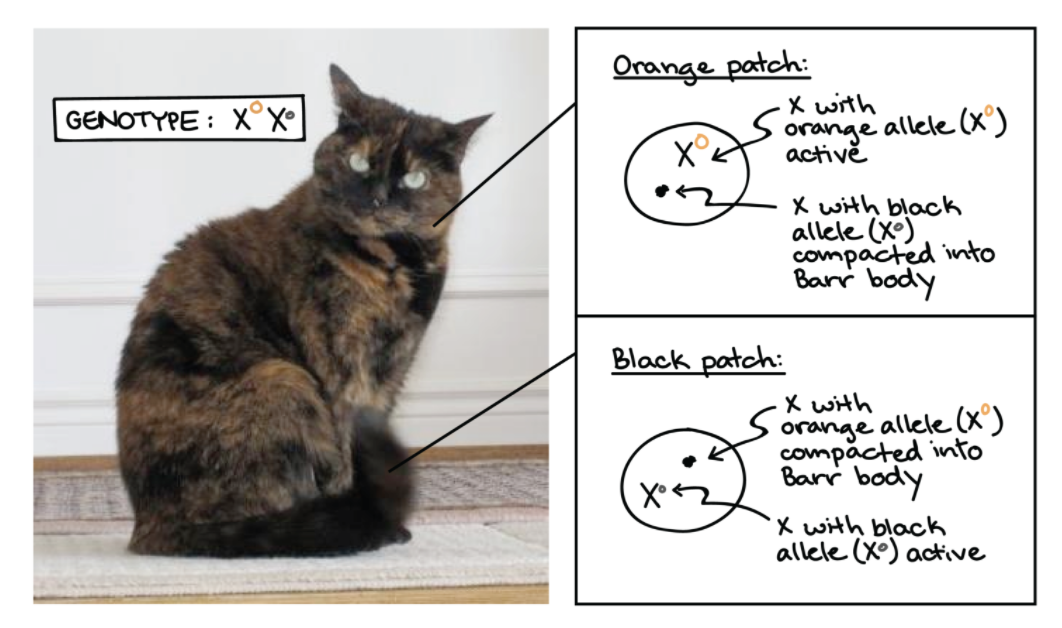 GENOTYPE: X^O X^o
Orange patch:
X with
orange allele (X^O)
active
X^O
X with black
allele (X^o)
compacted into
Barr body
Black patch:
X with
orange allele (X^O)
compacted into
Barr body
X^o
X with black
allele (X^o) active